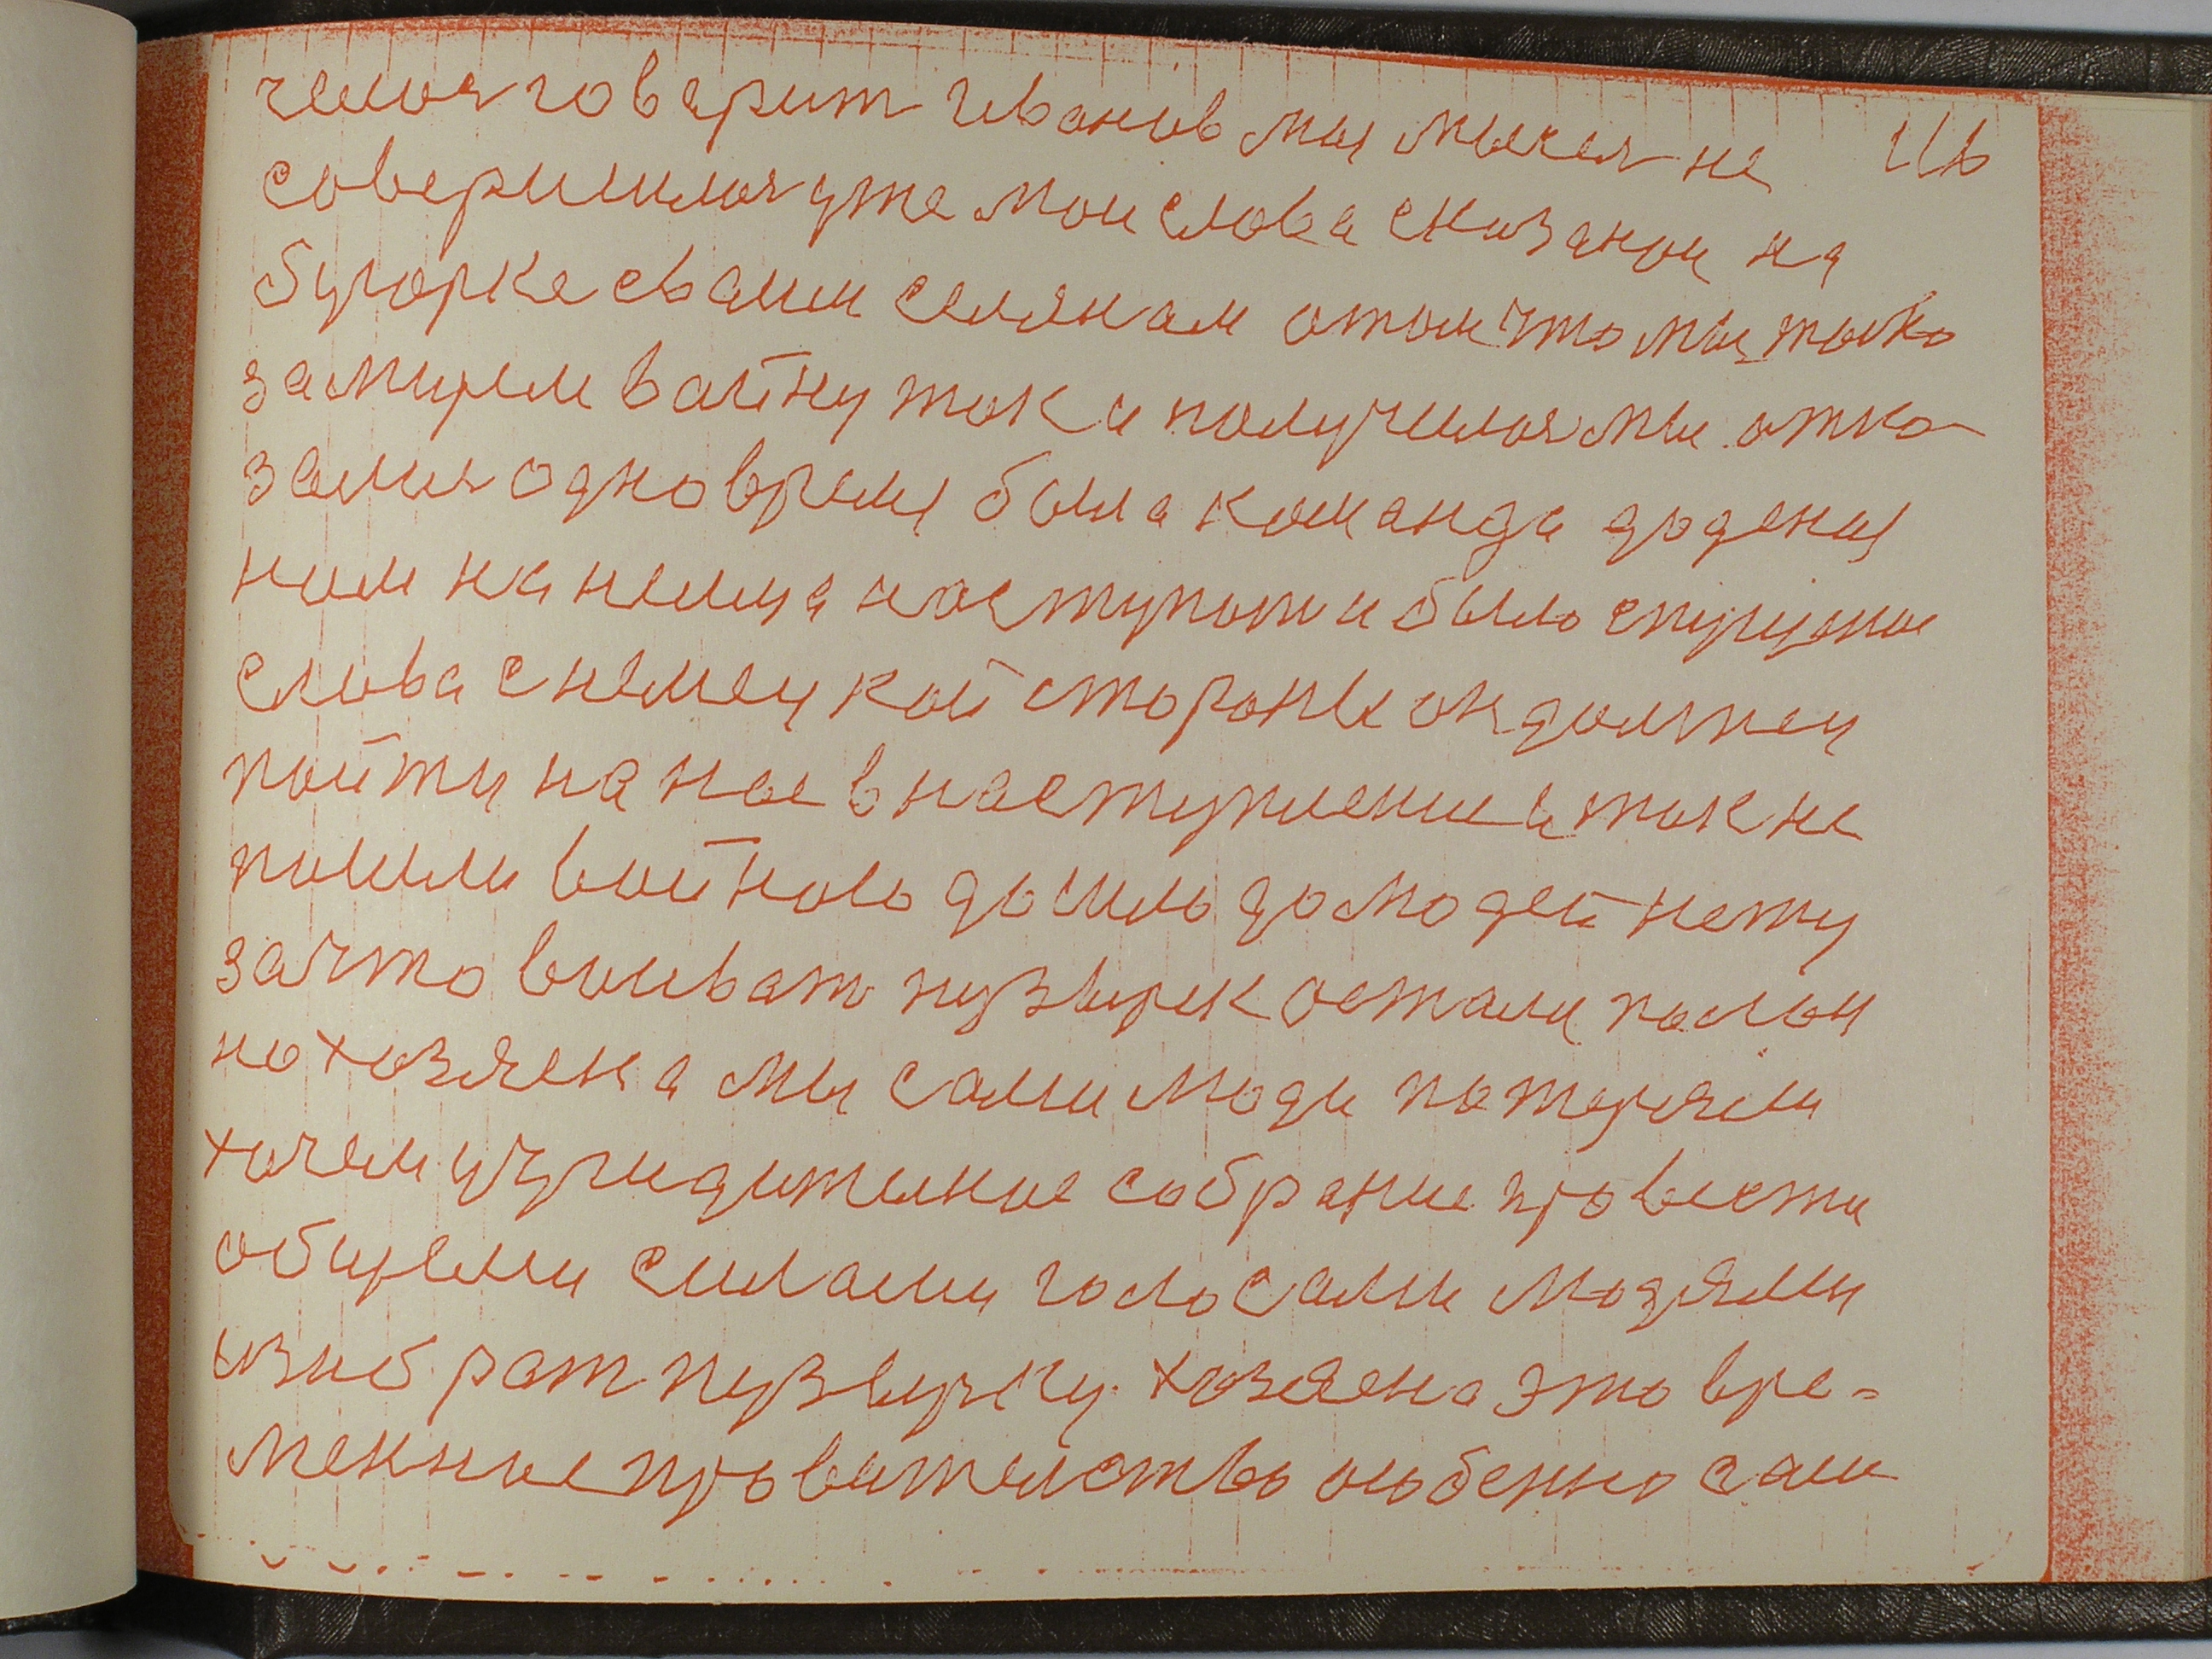 чилоя говарит Иванов мы мысел не 116
совершилоя уже мои слова сказанои на
бугорке сваим селянам отом что мы толко
замирем вайну так и получилоя мы отка-
залия одно времы была команда до дены
ном на немца наступат и было спущэное
слова с немецкой стороны он должен
пойти на нас в наступление а так не
пошли войною дошло до людей нету
за что воиват пузырек остали полои
но хозяена мы сами люди потеряли
хочем учридителное собрание провести
общеми силами голосами людями
изнебрат пузвырку хозяена это вре-
менное провителство особенно сами